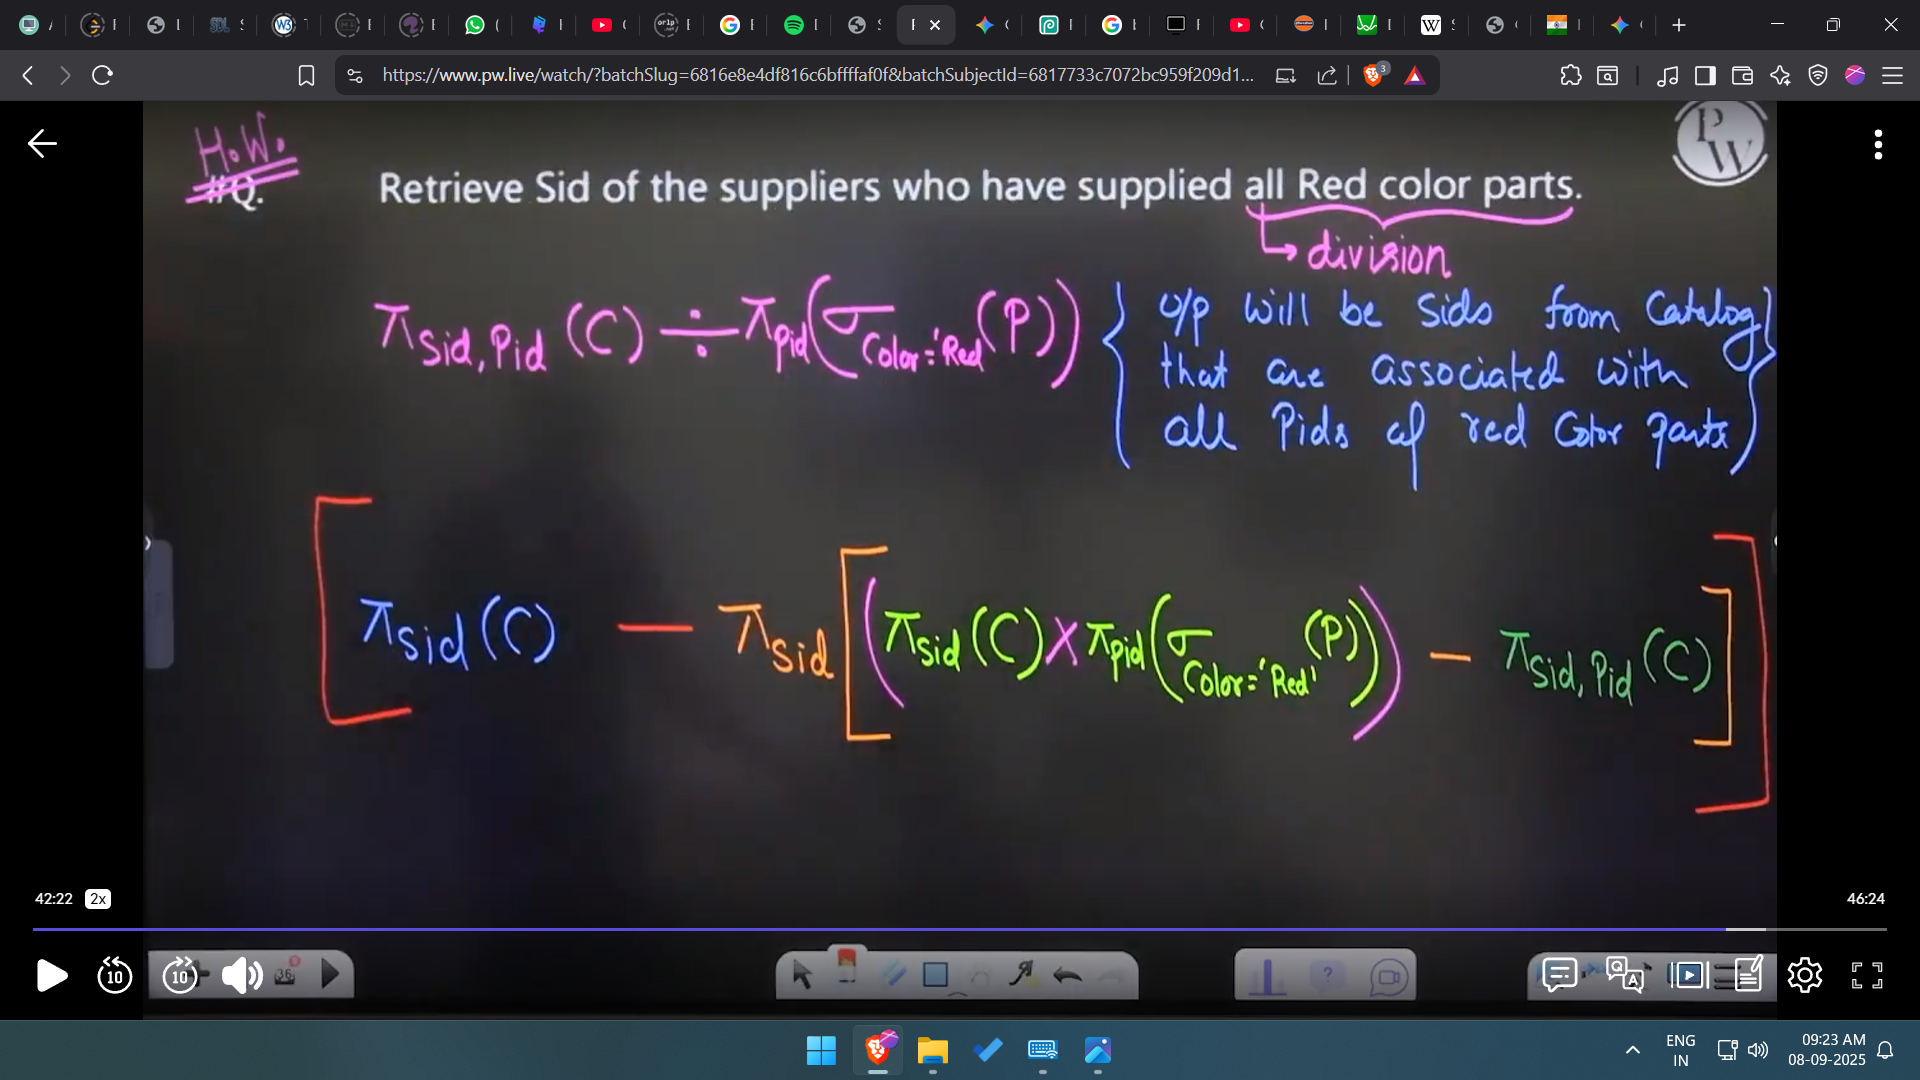 https://www.pw.live/watch/?batchSlug=6816e8e4df816c6bffffaf0f&batchSubjectId=6817733c7072bc959f209d1...
3
H.W.
#Q.
Retrieve Sid of the suppliers who have supplied all Red color parts.
PW
↳ division
π Sid, Pid (C) ÷ π Pid (σ Color='Red (P))
{ o/p will be sids from Catalog
that are associated with
all Pids of red Color parts }
[ π Sid (C) — π Sid [ ( π Sid (C) X π Pid ( σ Color='Red' (P) ) ) — π Sid, Pid (C) ] ]
42:22 2x
46:24
10
10
36
ENG
IN
09:23 AM
08-09-2025